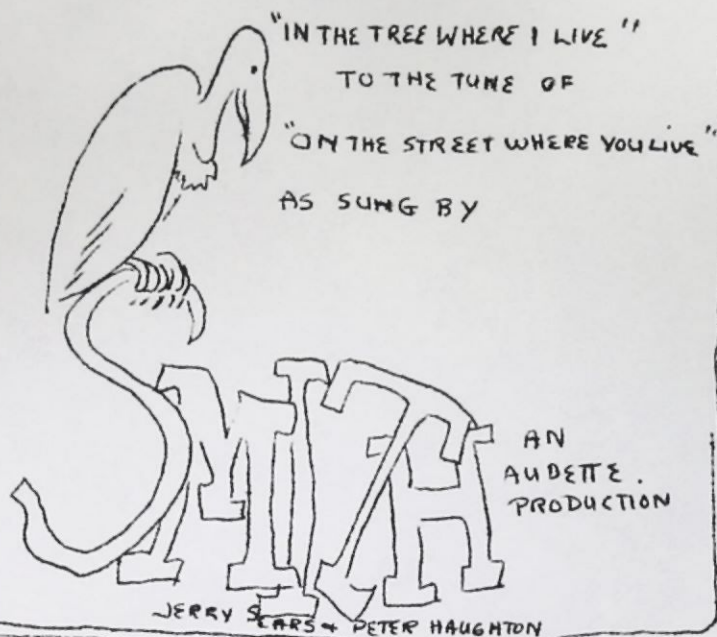 "IN THE TREE WHERE I LIVE"
TO THE TUNE OF
"ON THE STREET WHERE YOU LIVE"
AS SUNG BY
SMITH
AN
AUDETTE.
PRODUCTION
JERRY SEARS + PETER HAUGHTON